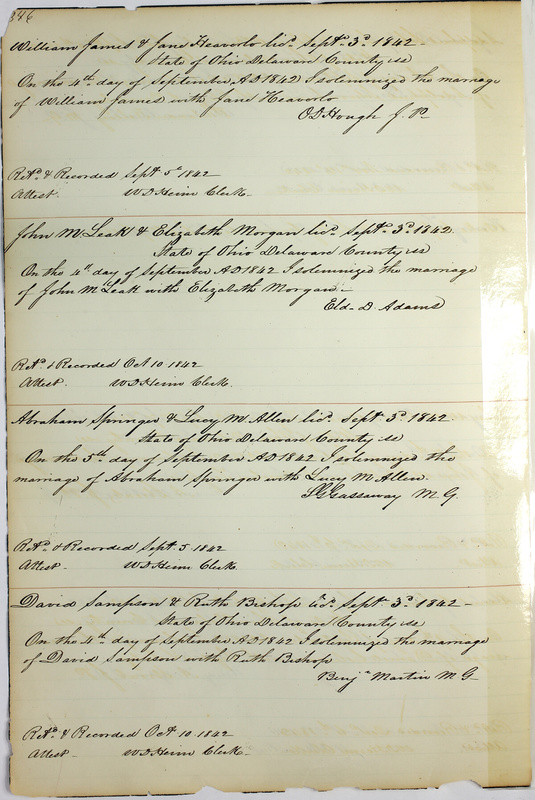 346
William James & Jane Heavorlo lic.d Sept.r 3.d 1842
State of Ohio Delaware County ss
On the 4th day of September AD 1842 I solemnized the marriage
of William James with Jane Heavorlo
O D Hough J. P.
Ret.d & Recorded Sept 5th 1842
Attest. W D Heim Clerk.
John McLeak & Elizabeth Morgan lic.d Sept.r 3.d 1842.
State of Ohio Delaware County ss
On the 4th day of September AD 1842 I solemnized the marriage
of John McLeak with Elizabeth Morgan.
Eld. D. Adams
Ret.d & Recorded Oct 10 1842
Attest. W D Heim Clerk.
Abraham Springer & Lucy M Allen lic.d Sept 3.d 1842.
State of Ohio Delaware County ss
On the 5th day of September AD 1842 I solemnized the
marriage of Abraham Springer with Lucy M Allen.
Gassaway M G
Ret.d & Recorded Sept 5 1842
Attest. W D Heim Clerk
David Sampson & Ruth Bishop lic.d Sept 3.d 1842
State of Ohio Delaware County ss
On the 4th day of September AD 1842 I solemnized the marriage
of David Sampson with Ruth Bishop
Benj.n Martin M G
Ret.d & Recorded Oct. 10. 1842
Attest W D Heim Clerk.